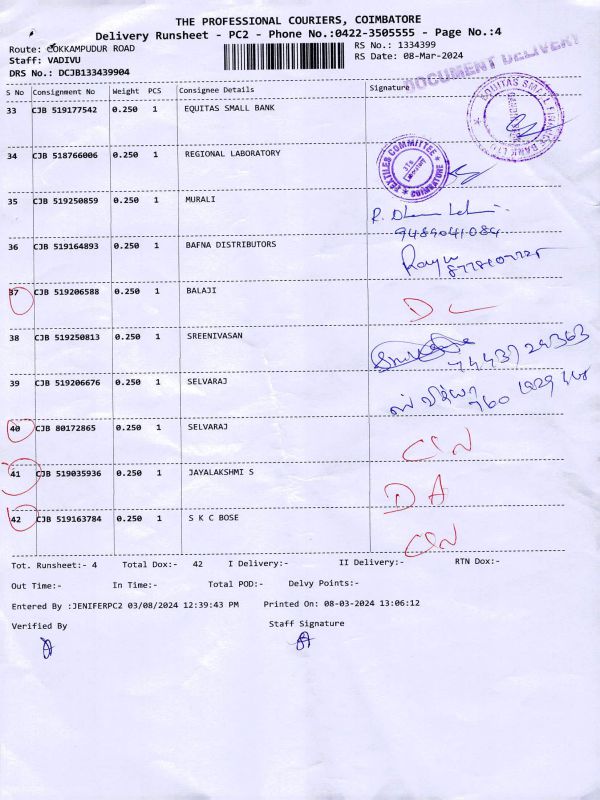 THE PROFESSIONAL COURIERS, COIMBATORE
Delivery Runsheet - PC2 - Phone No.:0422-3505555 - Page No.:4
Route: COKKAMPUDUR ROAD
RS No.: 1334399
Staff: VADIVU
RS Date: 08-Mar-2024
DRS No.: DCJB133439904
DOCUMENT DELIVERY
S No Consignment No Weight PCS Consignee Details Signature
33 CJB 519177542 0.250 1 EQUITAS SMALL BANK
EQUITAS SMALL FINANCE BANK LTD
34 CJB 518766006 0.250 1 REGIONAL LABORATORY
TEXTILES COMMITTEE COIMBATORE
35 CJB 519250859 0.250 1 MURALI
9489041084
36 CJB 519164893 0.250 1 BAFNA DISTRIBUTORS
37 CJB 519206588 0.250 1 BALAJI
D L
38 CJB 519250813 0.250 1 SREENIVASAN
39 CJB 519206676 0.250 1 SELVARAJ
40 CJB 80172865 0.250 1 SELVARAJ
41 CJB 519035936 0.250 1 JAYALAKSHMI S
D A
42 CJB 519163784 0.250 1 S K C BOSE
Tot. Runsheet:- 4 Total Dox:- 42 I Delivery:- II Delivery:- RTN Dox:-
Out Time:- In Time:- Total POD:- Delvy Points:-
Entered By :JENIFERPC2 03/08/2024 12:39:43 PM Printed On: 08-03-2024 13:06:12
Verified By Staff Signature